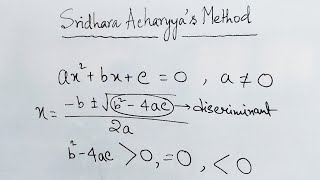 Sridhara Acharyya's Method
ax²+bx+c = 0 , a≠0
x = (-b ± √(b²-4ac))/2a → discriminant
b²-4ac >0, =0, <0